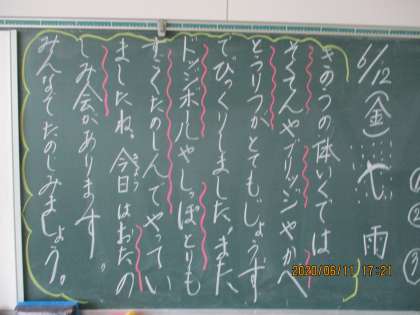 6/12(金)七雨
①
②
③
きのうの体いくでは
さくてんやブリッジやかべ
とうりつがとてもじょうず
でびっくりしました。また、
ドッジボールやしっぽとりも
すごくたのしんでやってい
ましたね。今日はおたの
きょう
しみ会があります。
みんなでたのしみましょう。
2020/06/11 17:21